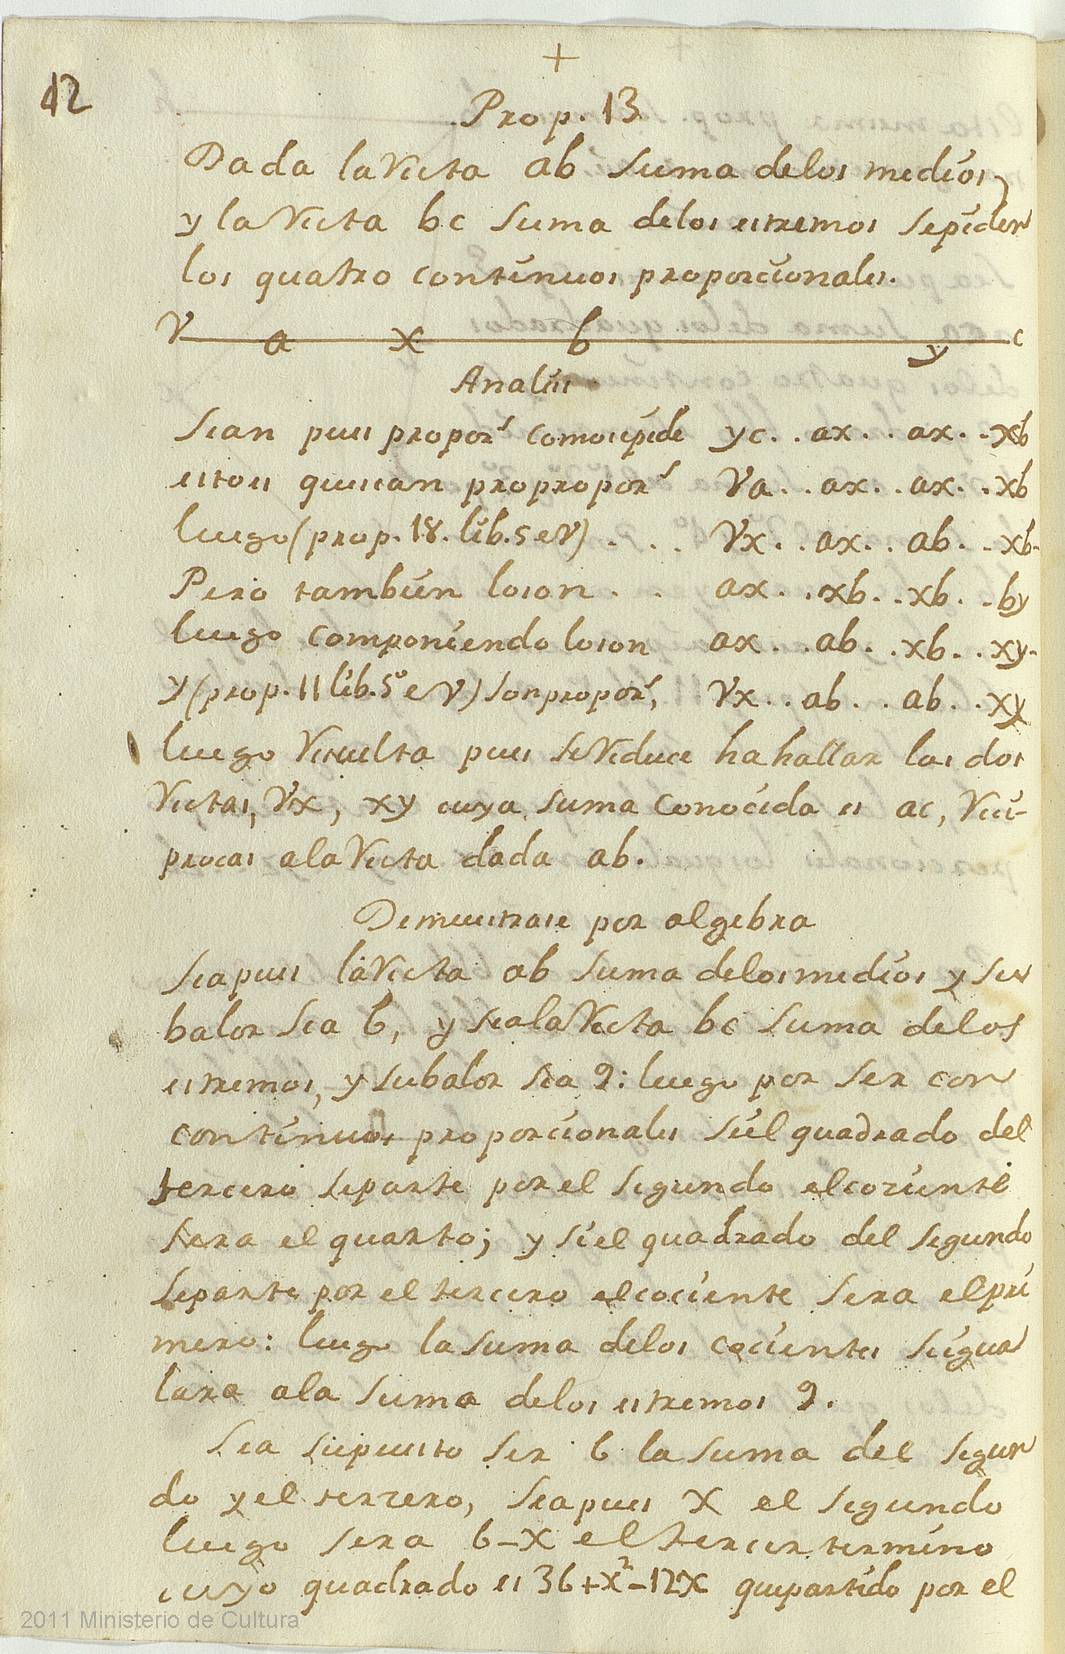 +
12
Prop. 13
Dada la Recta ab suma delos medios,
y la Recta bc suma delos estremos sepiden
los quatro continuos proporcionales.
R a x b y c
Analisis
Sean pues propors comosepide yc . . ax . . ax . . xb
estos quesean propropors Ra . . ax . . ax . . xb
luego (prop. 18. lib. 5 eV) . . . Rx . . ax . . ab . . xb.
Pero tambien loson . . ax . . xb . . xb . . by
luego componiendo loson ax . . ab . . xb . . xy.
y (prop. 11 lib. 5º eV) son propors, Rx . . ab . . ab . . xy
luego Resuelta pues seReduce ha hallar las dos
Rectas, Rx, xy cuya suma conocida es ac, Reci-
procas ala Recta dada ab.
Demuestrase por algebra
Sea pues la Recta ab suma delos medios y su
balor sea 6, y sea la Recta bc suma delos
estremos, y su balor sea 9: luego por ser con
continuos proporcionales si el quadrado del
tercero separte por el segundo el cociente
sera el quarto; y si el quadrado del segundo
separte por el tercero el cociente sera el pri
mero: luego la suma delos cocientes seigua
lara ala suma delos estremos 9.
Sea supuesto ser 6 la suma del segun
do y el terzero, sea pues X el segundo
luego sera 6-X el tercer termino
cuyo quadrado es 36+x²-12x quepartido por el
2011 Ministerio de Cultura